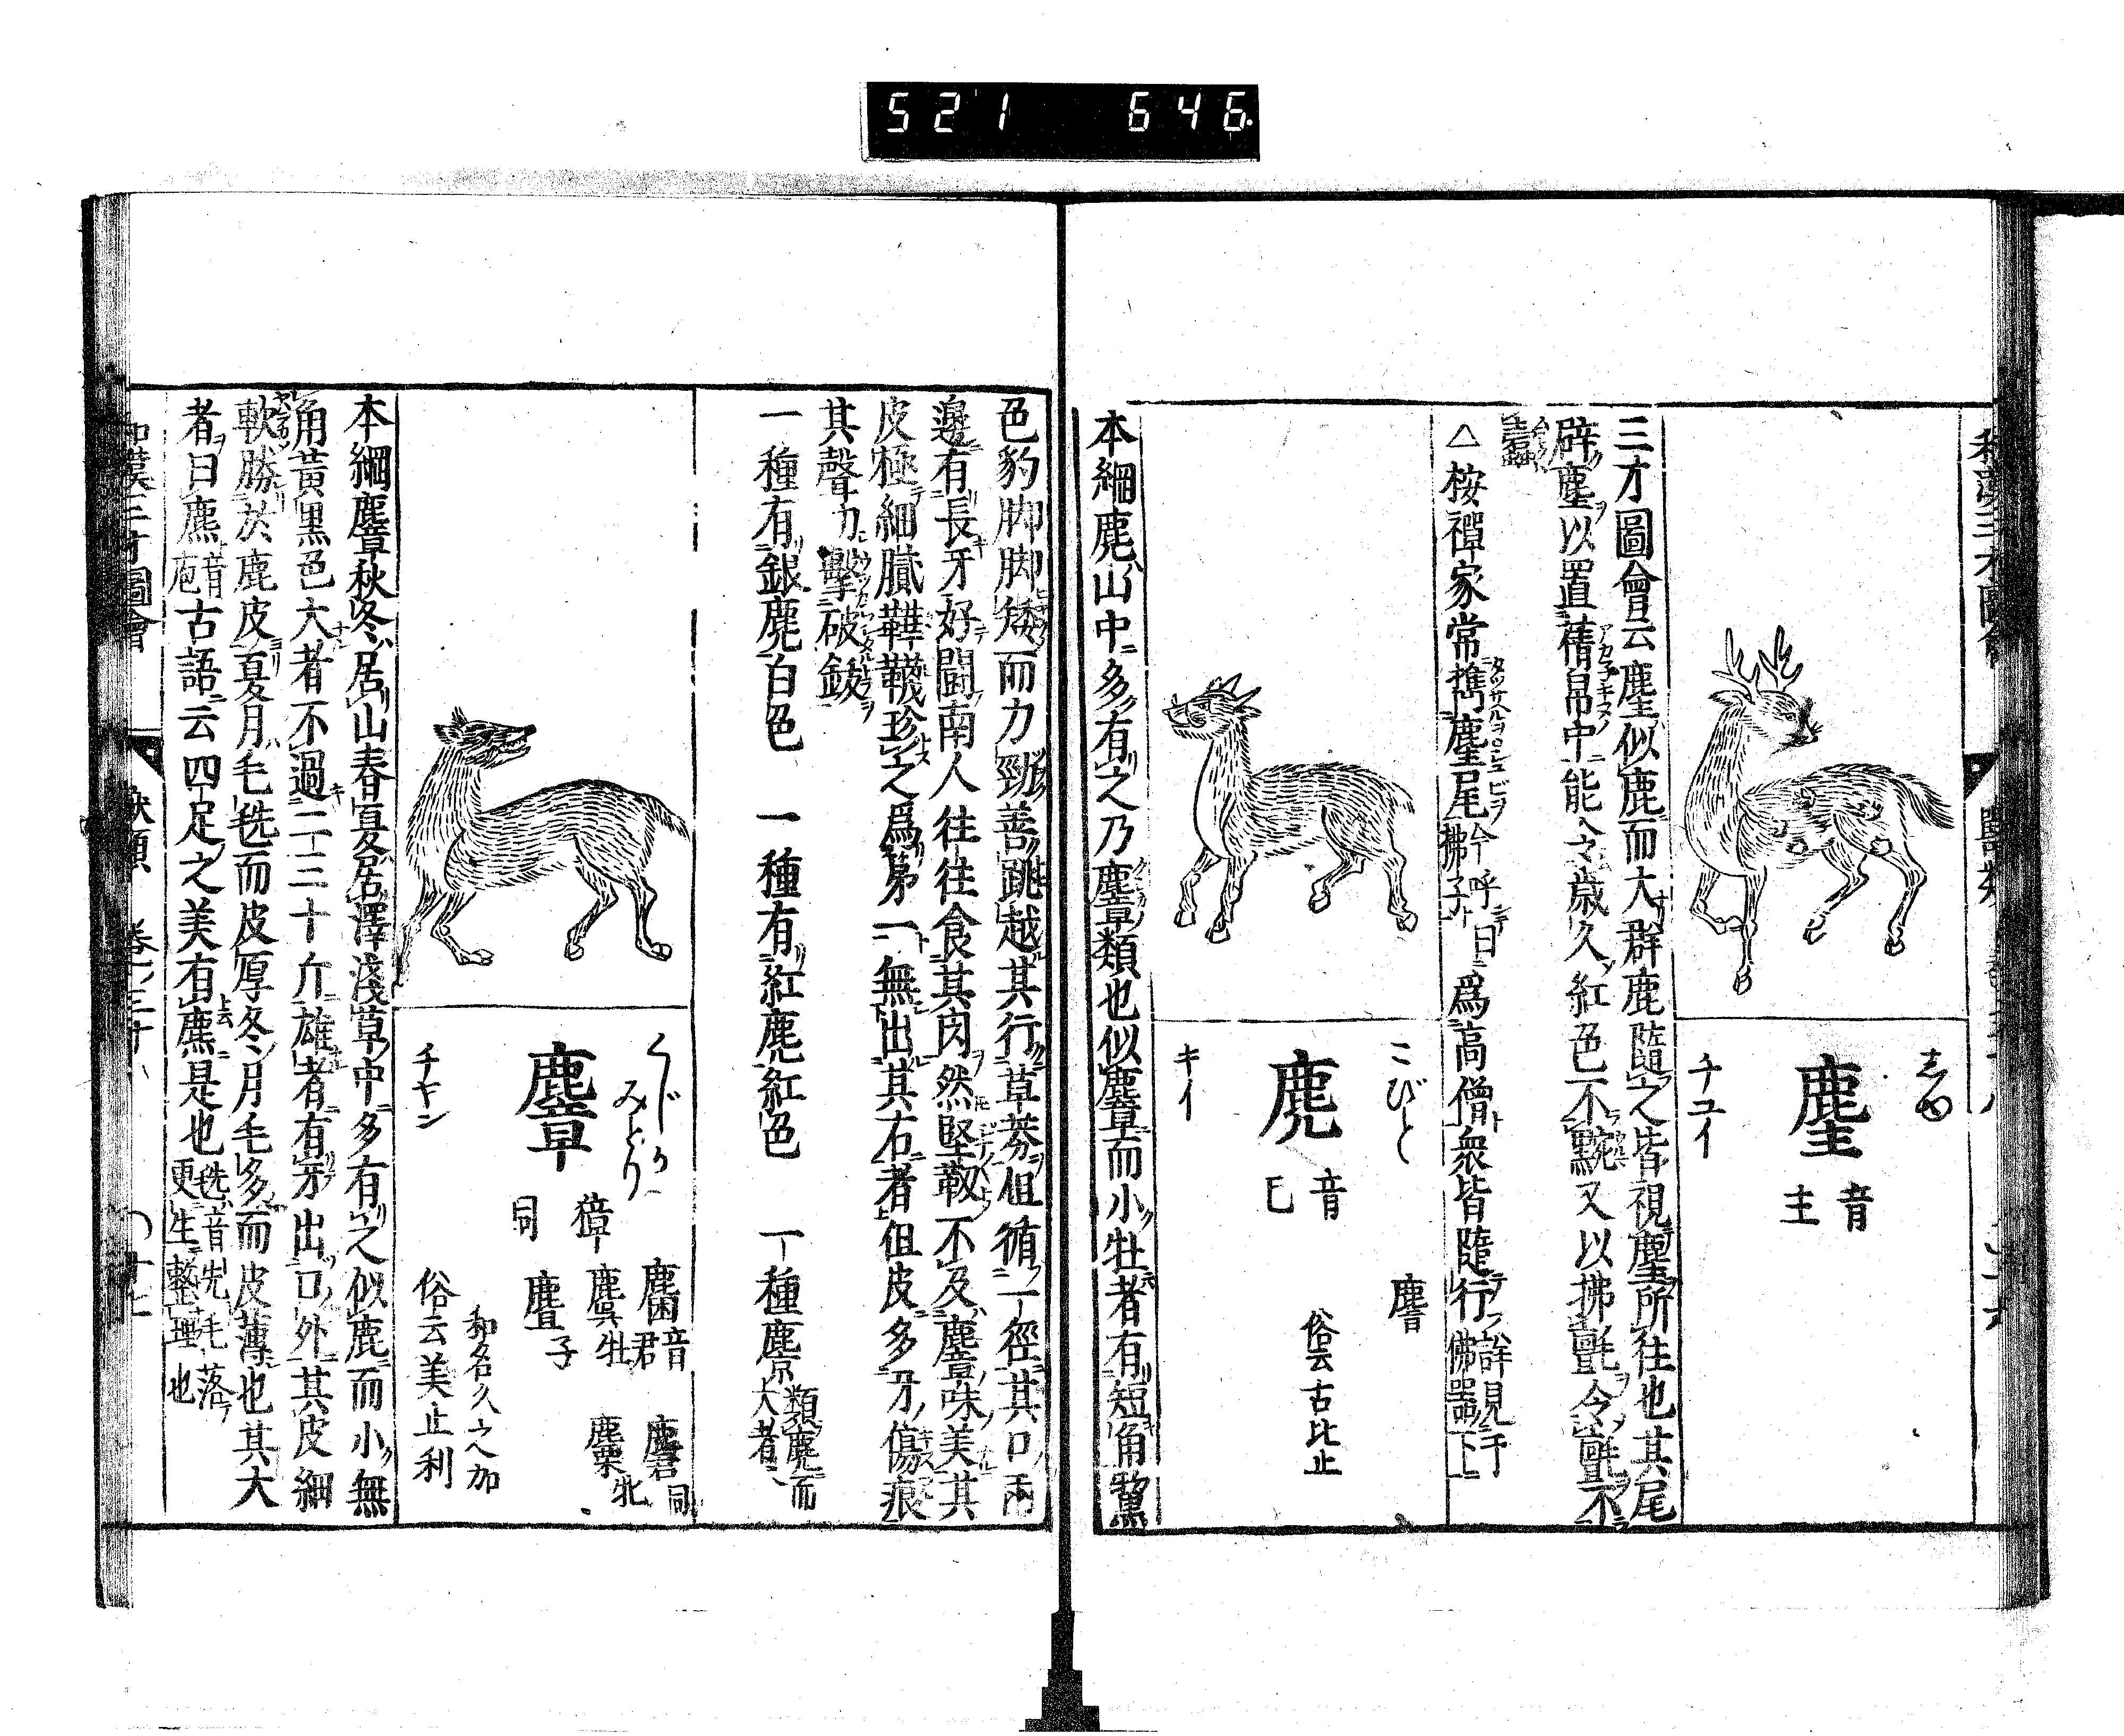 521 646
麈
音主
チユイ
三才圖會云麈似鹿而大群鹿隨之皆視麈所往也其尾
辟塵以置蒨帛中能令歲久紅色不黦又以拂氈令氈不
蠹
△按禪家常携麈尾今呼曰拂子爲高僧衆皆隨行詳見于佛器下
麂
音己
こびと
キイ
俗云古比止
本綱麂山中多有之乃麞類也似麞而小牡者有短角黧
色豹脚脚矮而力勁善跳越其行草莽但循一徑其口兩
邊有長牙好鬪南人往往食其肉然堅靱不及麞味美其
皮極細膩鞾韈珍之爲第一無出其右者但皮多牙傷痕
其聲如擊破鈸
一種有銀麂白色 一種有紅麂紅色 一種麖類麂而大者
麞
くじか
みどり
チヤン
獐同
麕音君 麏同
麌牡 麜牝
麆子
和名久之加
俗云美止利
本綱麞秋冬居山春夏居澤淺草中多有之似鹿而小無
角黃黒色大者不過二三十斤雄者有牙出口外其皮細
軟勝於鹿皮夏月毛毨而皮厚冬月毛多而皮薄也其大
者曰麃音庖古語云四足之美有麃是也毨音先毛落更生整理也
和漢三才圖會
獸類 卷之三十八